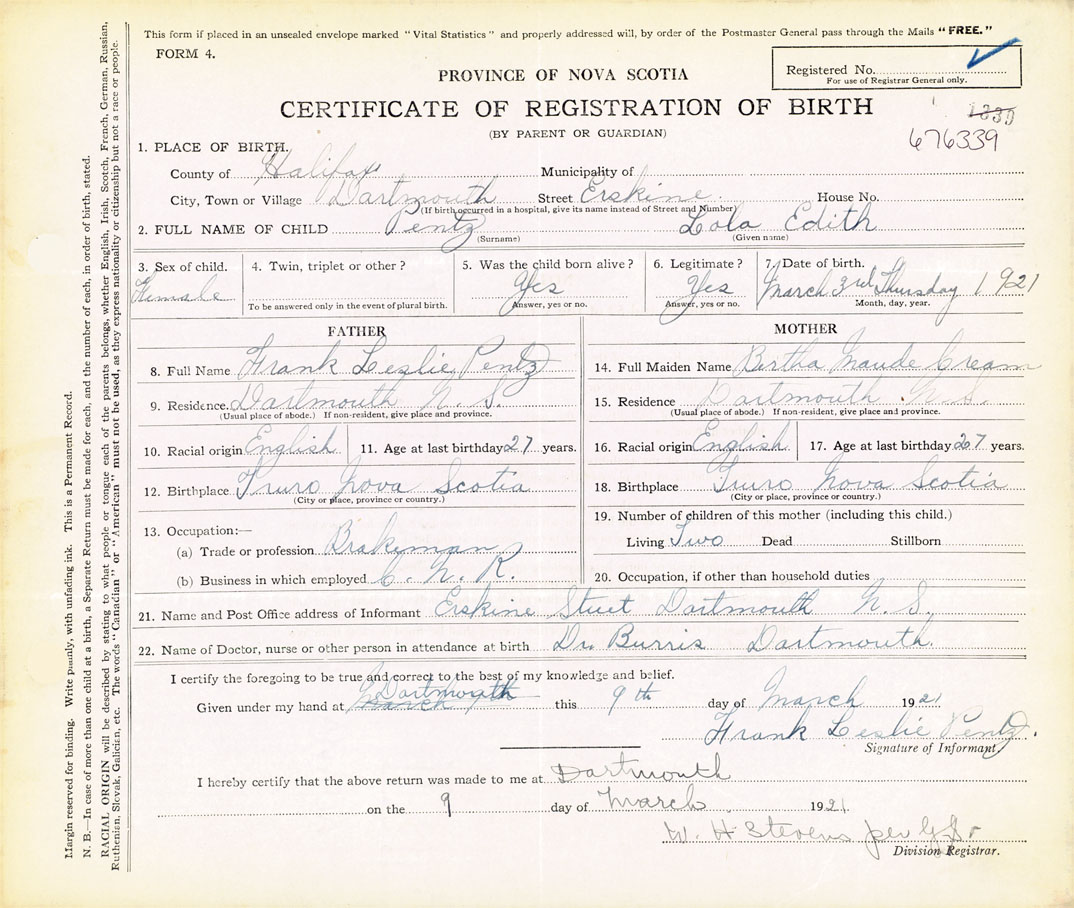 This form if placed in an unsealed envelope marked "Vital Statistics" and properly addressed will, by order of the Postmaster General pass through the Mails "FREE."
FORM 4.
Registered No.
For use of Registrar General only.
PROVINCE OF NOVA SCOTIA
CERTIFICATE OF REGISTRATION OF BIRTH
(BY PARENT OR GUARDIAN)
1339
676339
1. PLACE OF BIRTH.
County of Halifax Municipality of
City, Town or Village Dartmouth Street Erskine House No.
(If birth occurred in a hospital, give its name instead of Street and Number)
2. FULL NAME OF CHILD Pentz Lola Edith
(Surname) (Given name)
3. Sex of child. Female
4. Twin, triplet or other?
To be answered only in the event of plural birth.
5. Was the child born alive? Yes
Answer, yes or no.
6. Legitimate? Yes
Answer, yes or no.
7. Date of birth. March 3rd Thursday 1921
Month, day, year.
FATHER
8. Full Name Frank Leslie Pentz
9. Residence. Dartmouth N. S.
(Usual place of abode.) If non-resident, give place and province.
10. Racial origin English 11. Age at last birthday 27 years.
12. Birthplace Truro Nova Scotia
(City or place, province or country.)
13. Occupation:—
(a) Trade or profession Brakeman
(b) Business in which employed C. N. R.
MOTHER
14. Full Maiden Name Bertha Maude Cream
15. Residence Dartmouth N. S.
(Usual place of abode.) If non-resident, give place and province.
16. Racial origin English 17. Age at last birthday 27 years.
18. Birthplace Truro Nova Scotia
(City or place, province or country.)
19. Number of children of this mother (including this child.)
Living Two Dead Stillborn
20. Occupation, if other than household duties
21. Name and Post Office address of Informant Erskine Street Dartmouth N. S.
22. Name of Doctor, nurse or other person in attendance at birth Dr. Burris Dartmouth.
I certify the foregoing to be true and correct to the best of my knowledge and belief.
Given under my hand at Dartmouth this 9th day of March 1921
Frank Leslie Pentz.
Signature of Informant
I hereby certify that the above return was made to me at Dartmouth
on the 9 day of March 1921
W. H Stevens per
Division Registrar.
Margin reserved for binding. Write plainly, with unfading ink. This is a Permanent Record.
N. B.—In case of more than one child at a birth, a Separate Return must be made for each, and the number of each, in order of birth, stated.
RACIAL ORIGIN will be described by stating to what people or tongue each of the parents belongs, whether English, Irish, Scotch, French, German, Russian,
Ruthenian, Slovak, Galician, etc. The words "Canadian" or "American" must not be used, as they express nationality or citizenship but not a race or people.